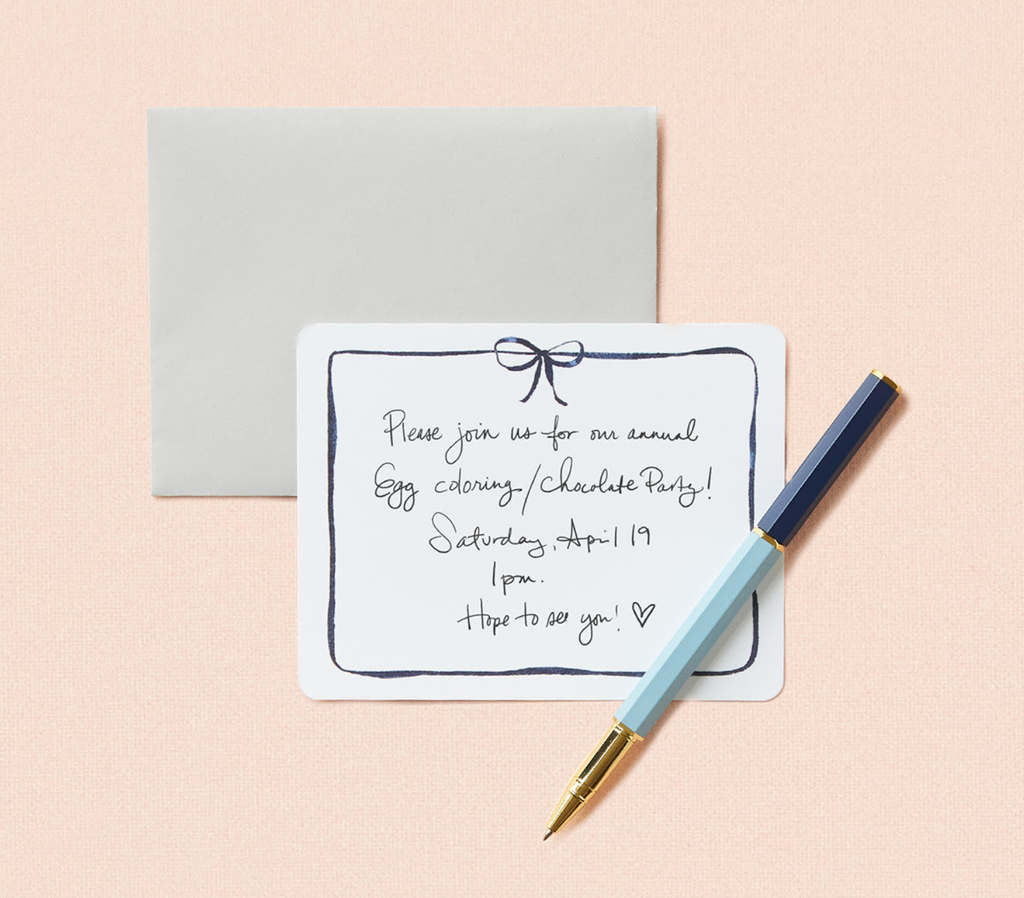 Please join us for our annual
Egg coloring/Chocolate Party!
Saturday, April 19
1pm.
Hope to see you! ♡